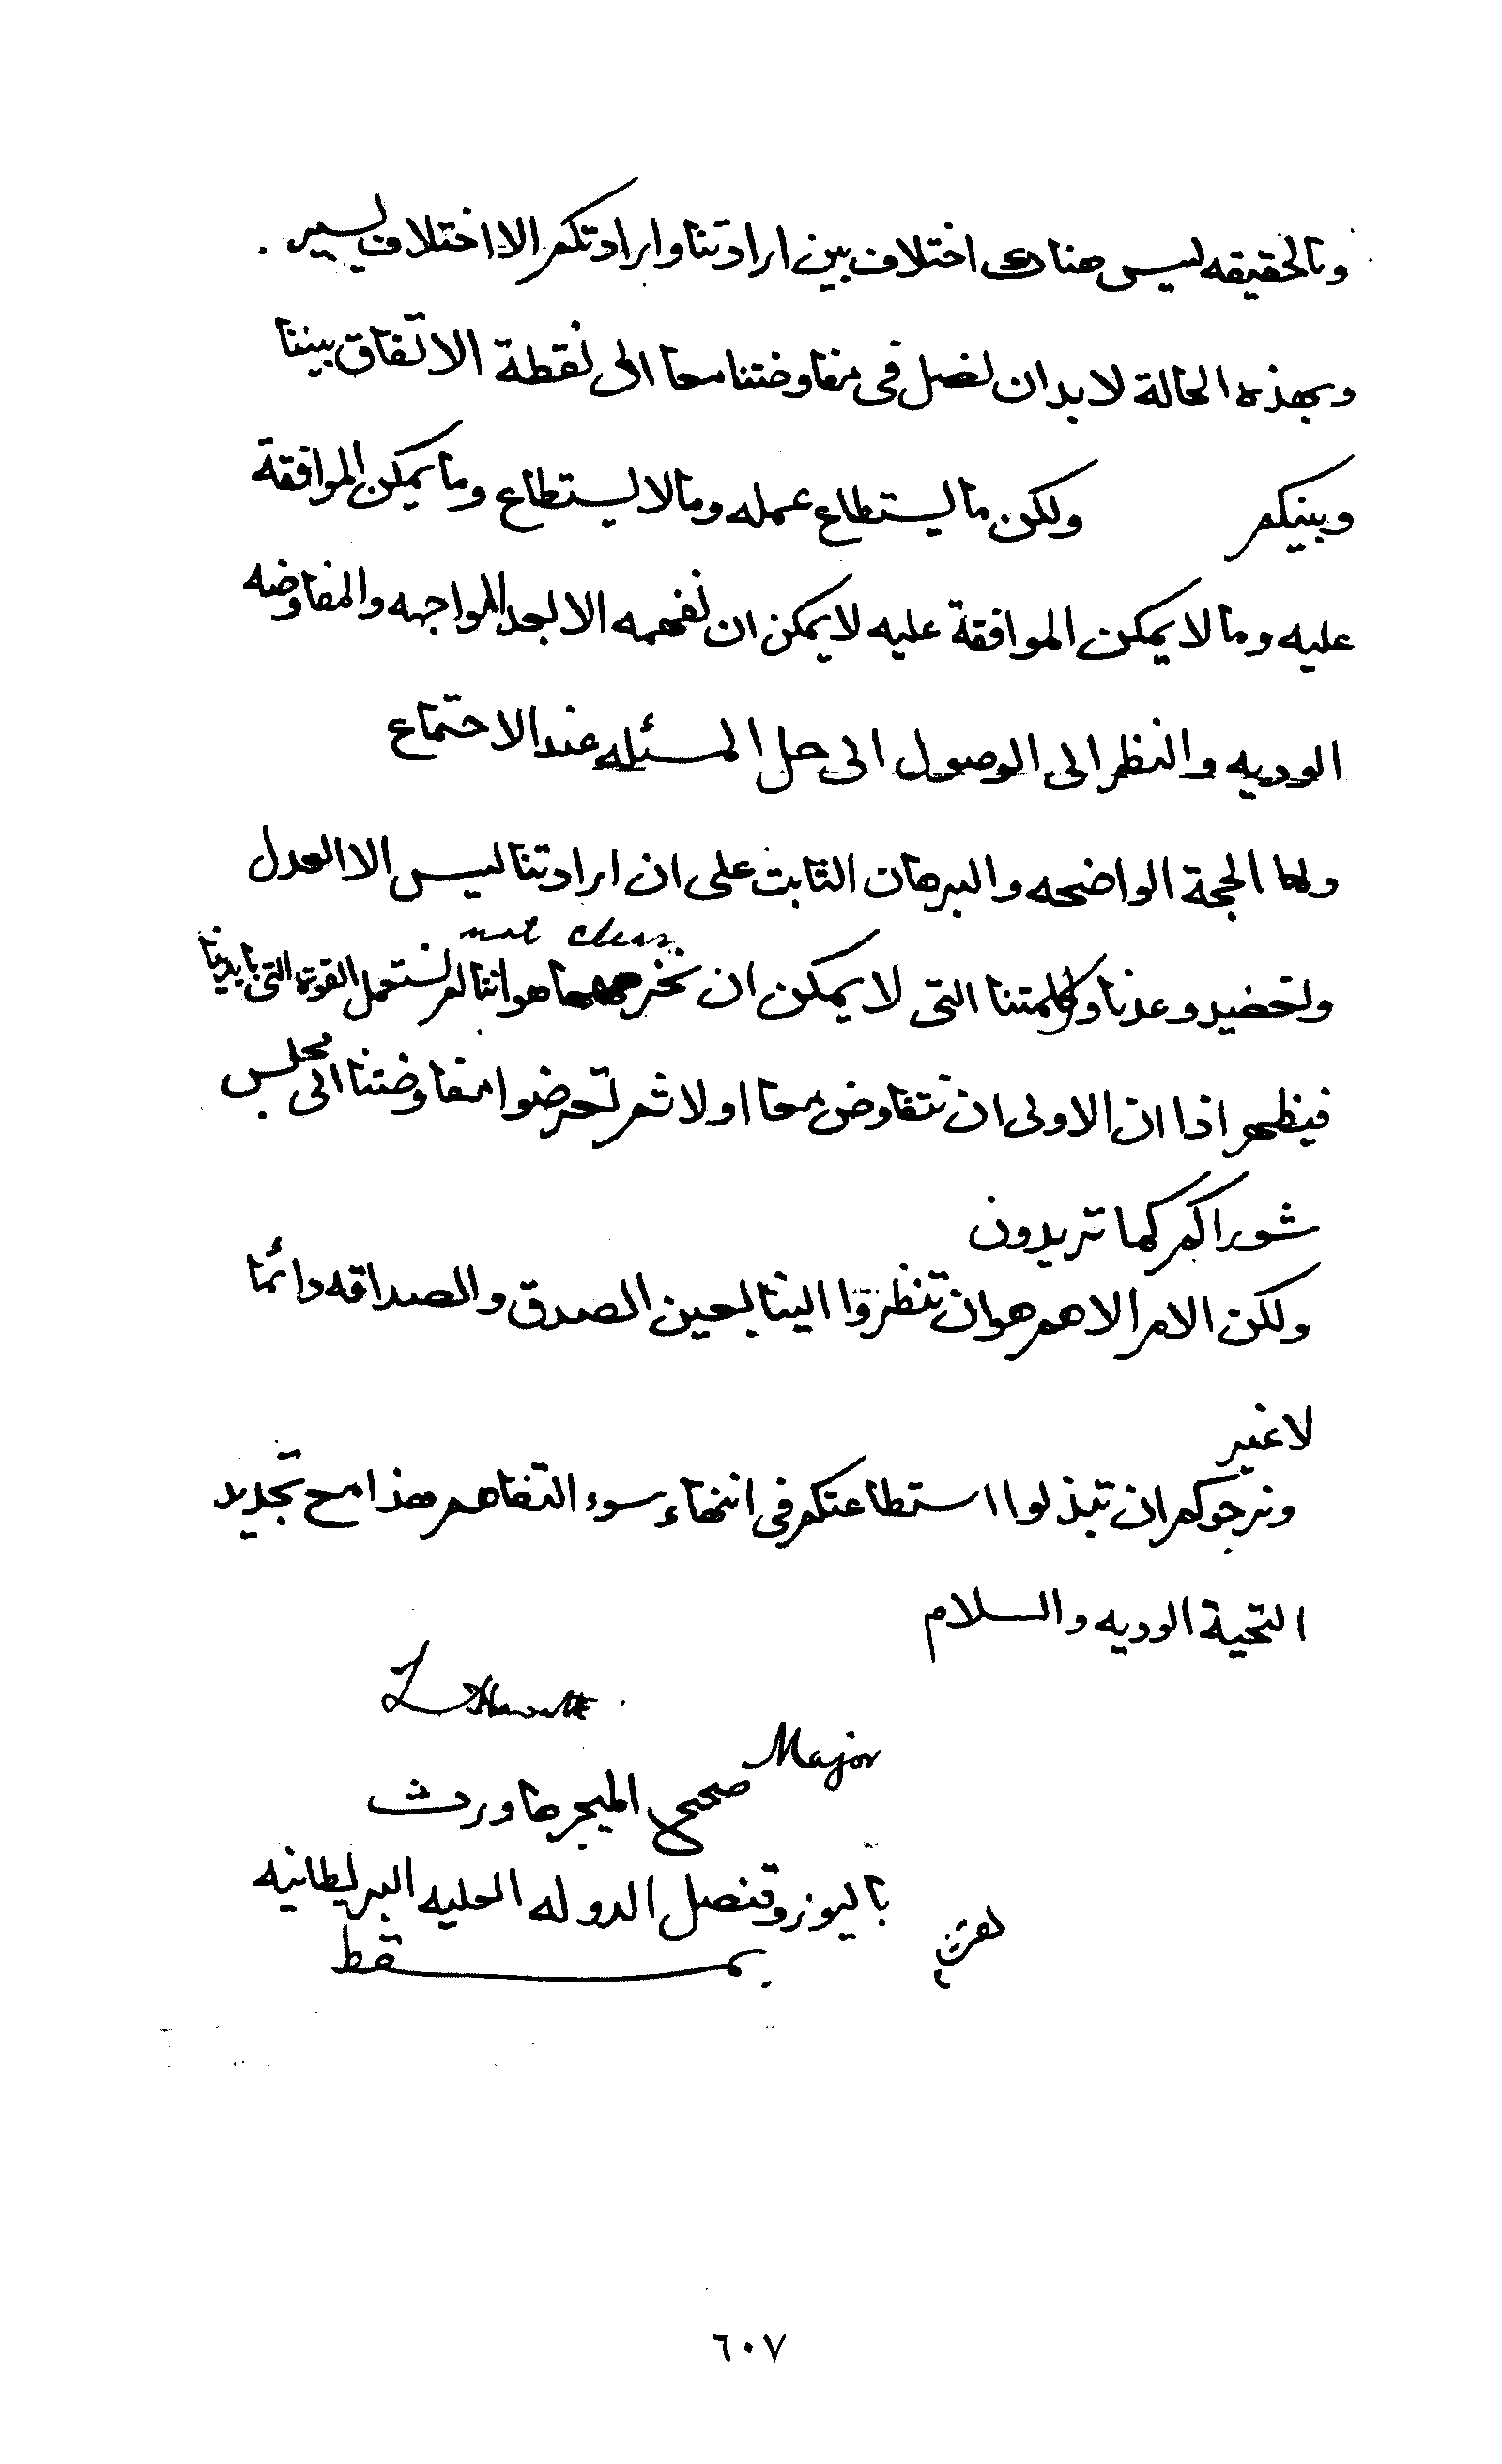 وبالحقيقه ليس هناك اختلاف بين ارادتنا وارادتكم الا اختلاف يسير .
وبهذه الحالة لابد ان نصل فى مفاوضتنا معا الى نقطة الاتفاق بيننا
وبينكم ولكن ما يستطاع عمله وما لا يستطاع وما يمكن الموافقة
عليه وما لا يمكن الموافقة عليه لا يمكن ان نفهمه الا بعد المواجهه والمفاوضه
الوديه والنظر الى الوصول الى حل المسئله عند الاجتماع
ولعا الحجة الواضحه والبرهان الثابت على ان ارادتنا ليس الا العدل
not clear
وتعضيد وعدنا وكلمتنا التى لا يمكن ان نخرج هو اننا لم نستعمل القوة التى بايدينا
فيظهر اذا ان الاولى ان نتفاوض معا اولا ثم تعرضوا مفاوضتنا الى مجلس
شوراكم كما تريدون
ولكن الامر الاهم هو ان تنظروا الينا بعين الصدق والصداقه دائما
لا غير
ونرجوكم ان تبذلوا استطاعتكم فى انتهاء سوء التفاهم هذا مع تجديد
التحية الوديه والسلام
L Haworth
Major
صحيح الميجر هاورث
باليوز وقنصل الدوله العليه البريطانيه
بمسقط
٦٠٧